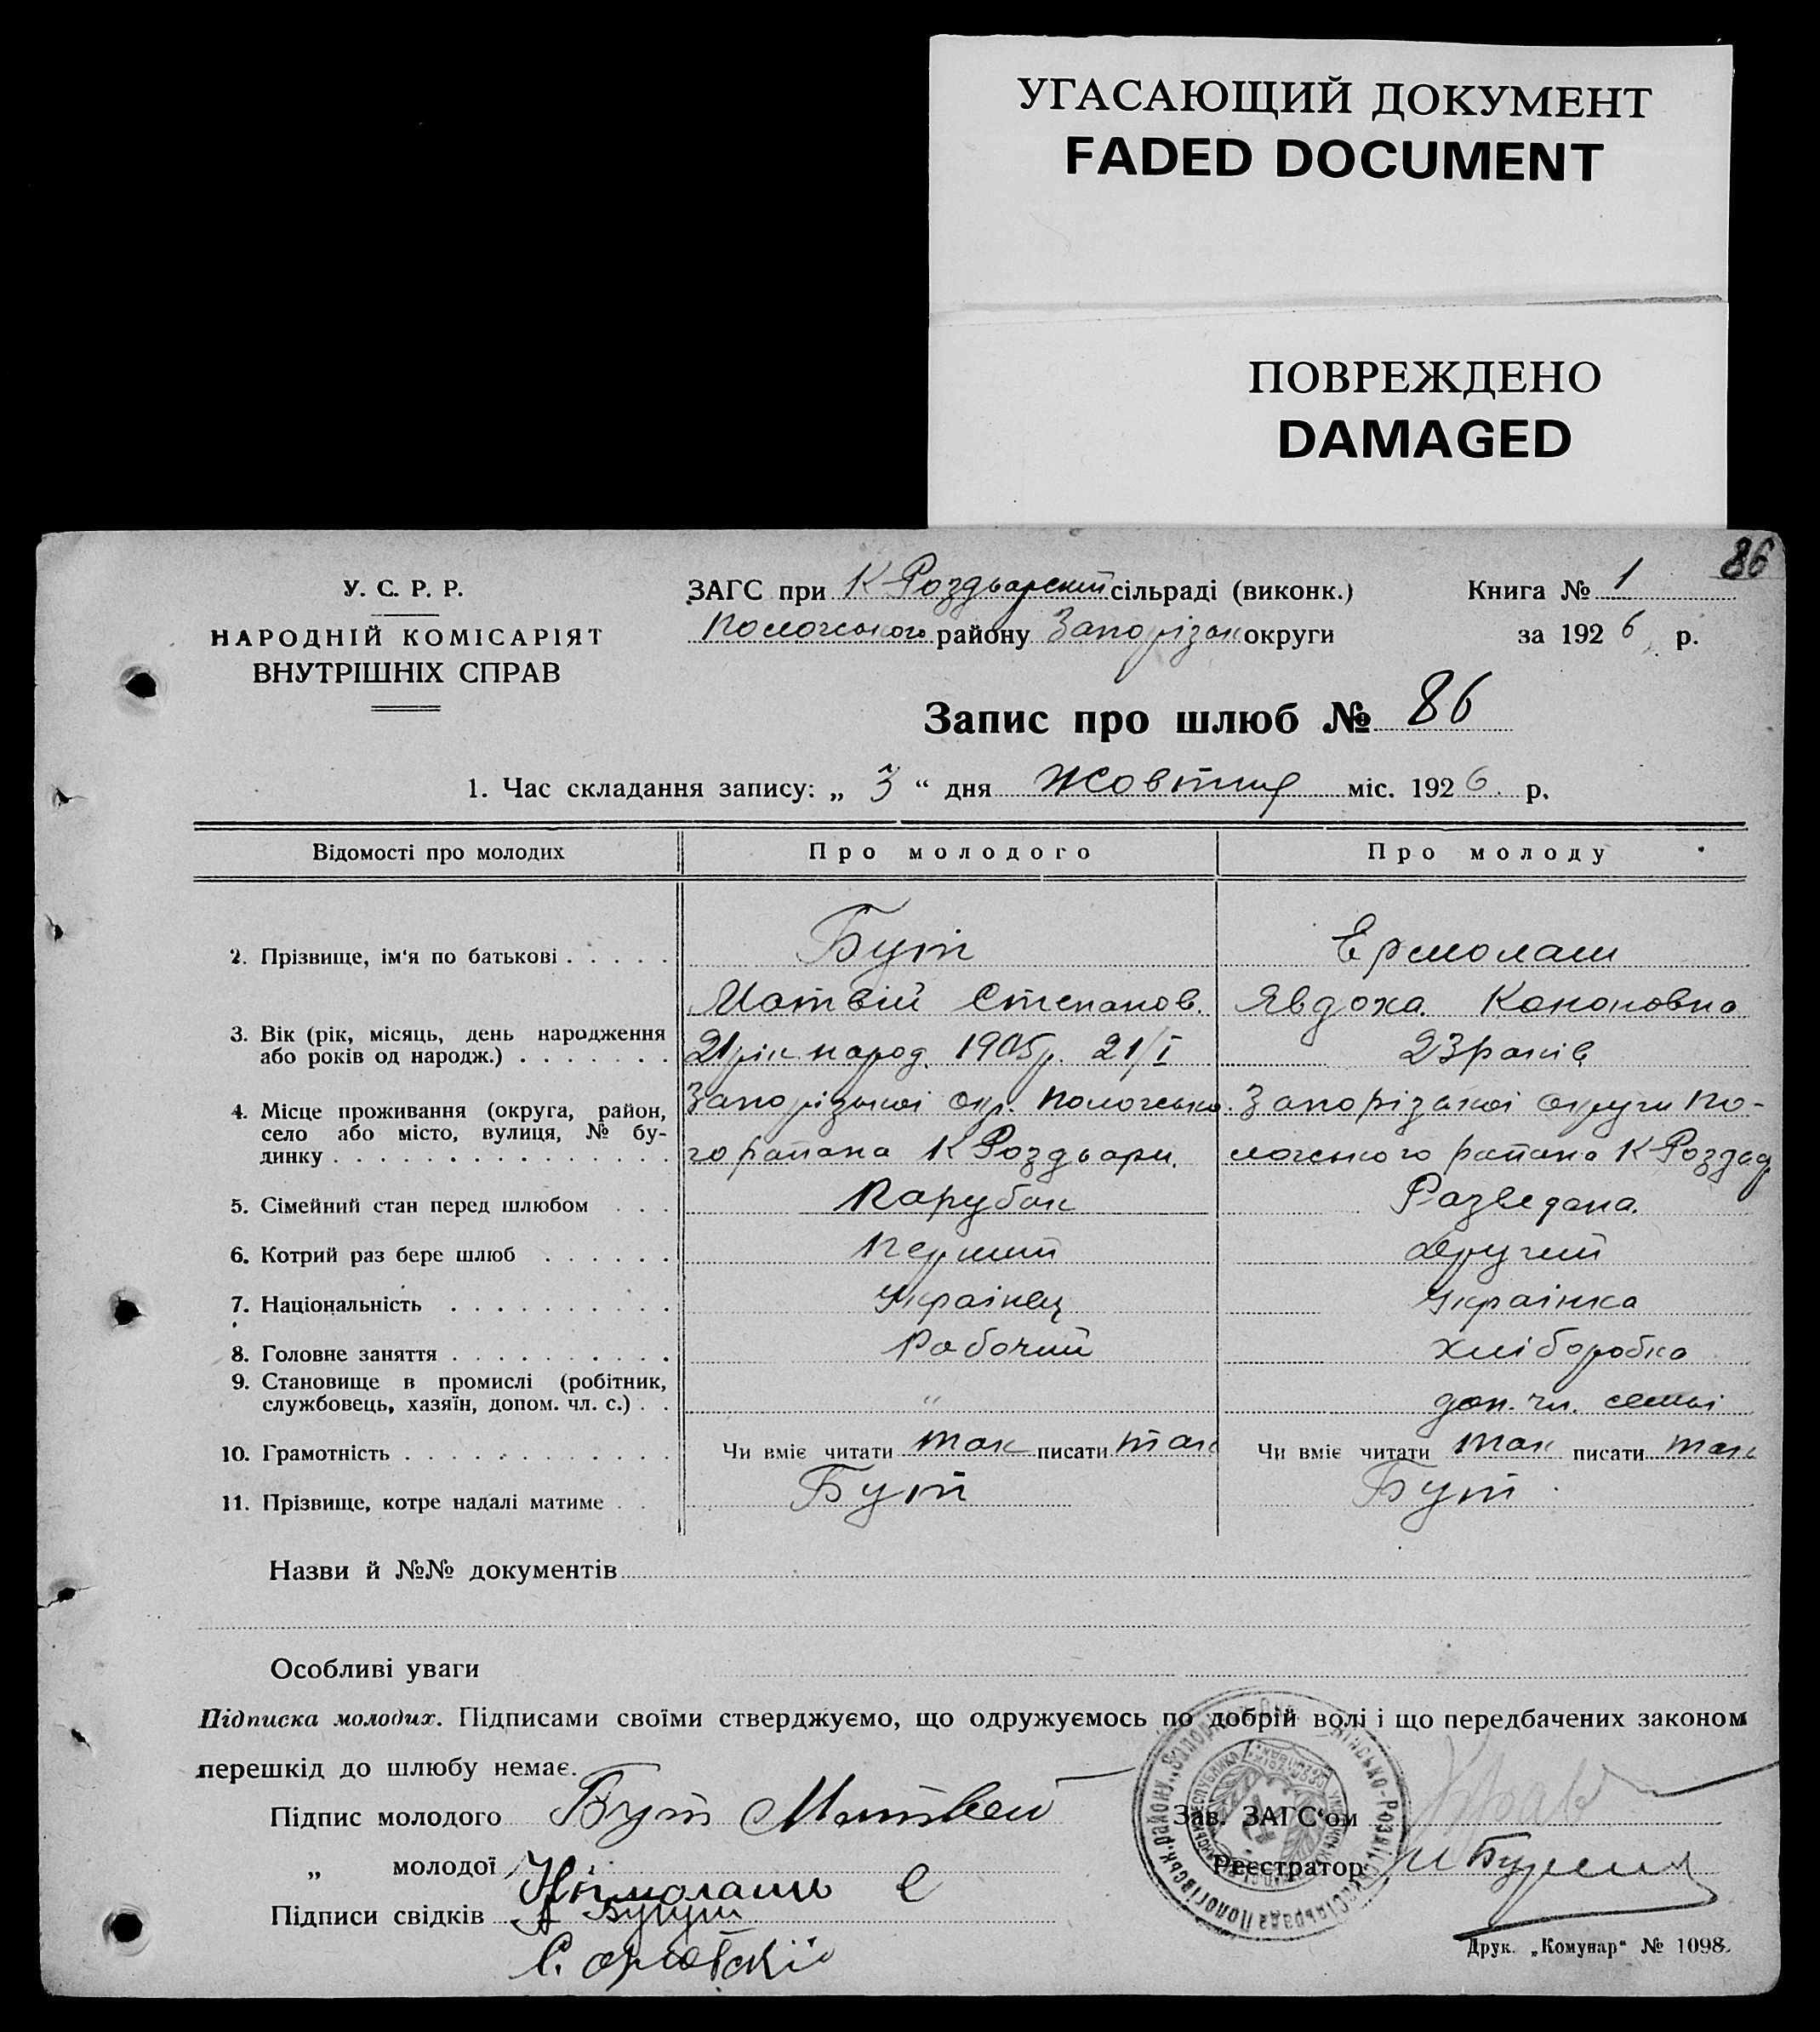 УГАСАЮЩИЙ ДОКУМЕНТ
FADED DOCUMENT
ПОВРЕЖДЕНО
DAMAGED
86
У. С. Р. Р.
НАРОДНІЙ КОМІСАРІЯТ
ВНУТРІШНІХ СПРАВ
ЗАГС при К Роздьарський сільраді (виконк.)
Пологського району Запорізьк округи
Книга № 1
за 1926 р.
Запис про шлюб № 86
1. Час складання запису: „ 3 “ дня Жовтня міс. 1926 р.
Відомості про молодих Про молодого Про молоду
2. Прізвище, ім'я по батькові Бут Ермолаш
Матвій Степанов. Явдоха Кононовна
3. Вік (рік, місяць, день народження
або років од народж.) 21 рік народ. 1905 р. 21/I 23 років
4. Місце проживання (округа, район, Запорізької окр. Пологсько Запорізької округи По-
село або місто, вулиця, № бу-
динку го району К Роздьари. логського района К Роздар
5. Сімейний стан перед шлюбом Парубок Разведена.
6. Котрий раз бере шлюб Перший другий
7. Національність Українец Українка
8. Головне заняття Рабочий хліборобка
9. Становище в промислі (робітник,
службовець, хазяїн, допом. чл. с.) " доп. чл. семьі
10. Грамотність Чи вміє читати так писати так Чи вміє читати так писати так
11. Прізвище, котре надалі матиме Бут Бут
Назви й №№ документів
Особливі уваги
Підписка молодих. Підписами своїми стверджуємо, що одружуємось по добрій волі і що передбачених законом
перешкід до шлюбу немає.
Підпис молодого Бут Матвей
Зав. ЗАГС'ом
„ молодої
Реєстратор
Підписи свідків
Друк. „Комунар“ № 1098.